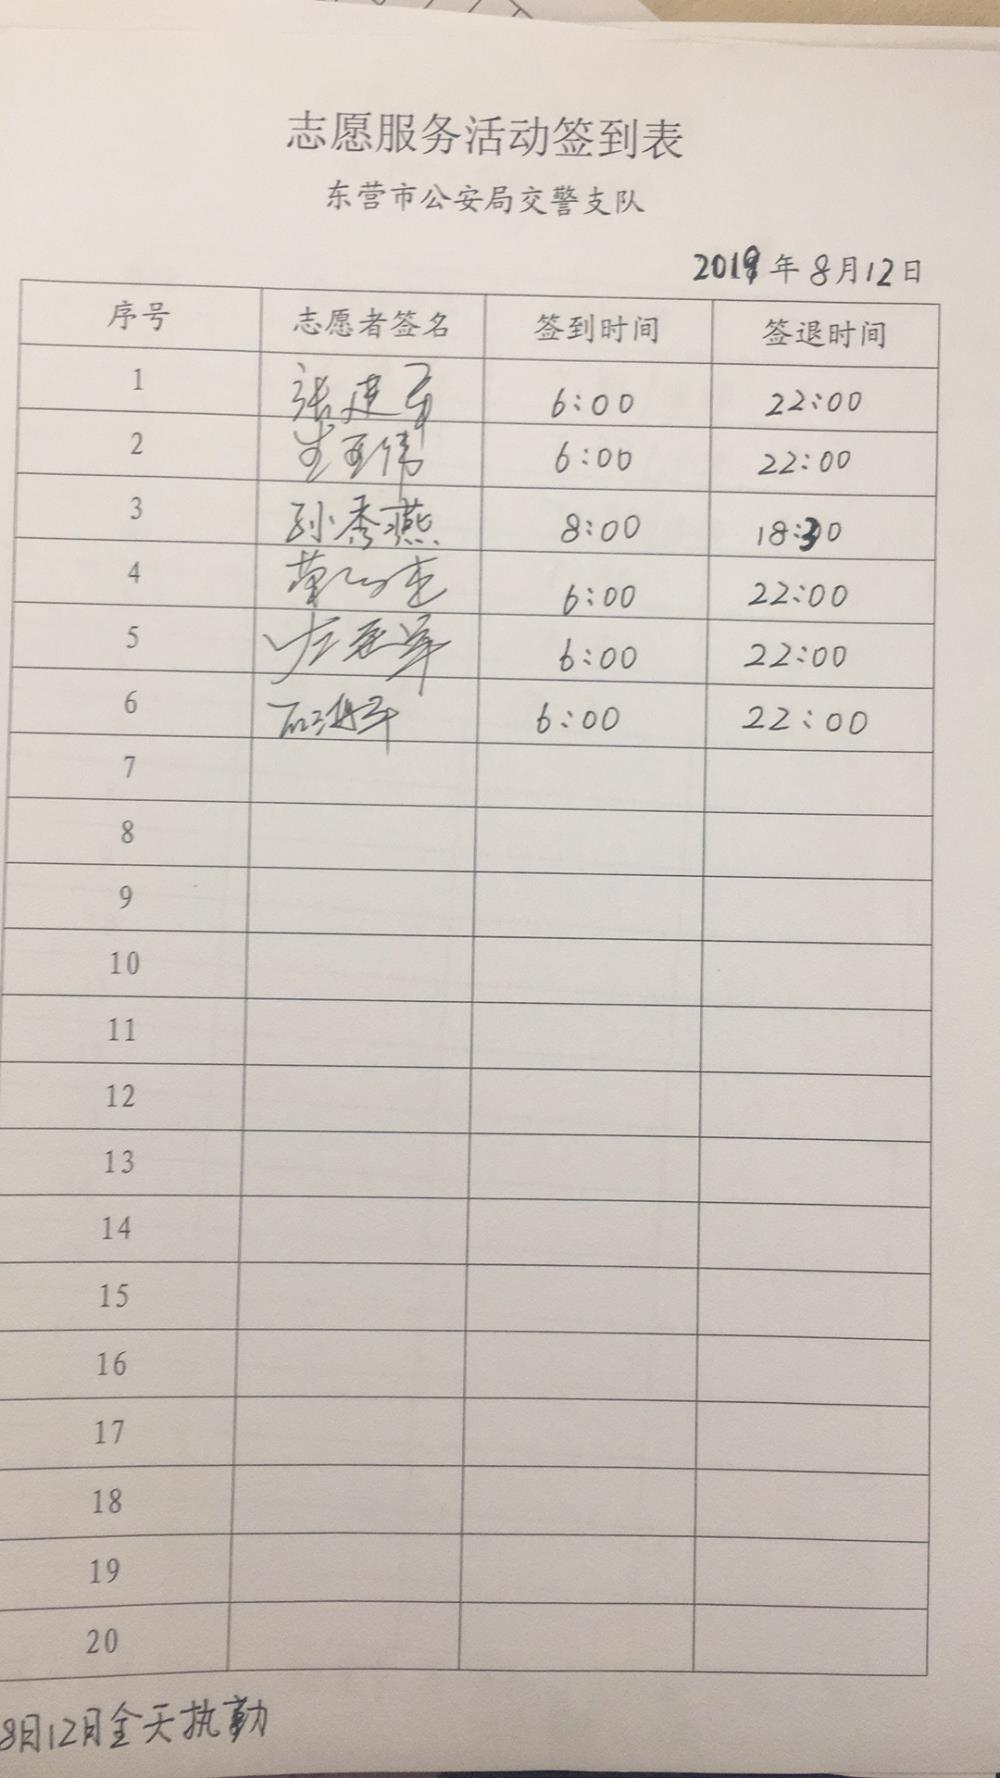 志愿服务活动签到表
东营市公安局交警支队
2019年8月12日
序号 志愿者签名 签到时间 签退时间
1 张建军 6:00 22:00
2 6:00 22:00
3 孙秀燕 8:00 18:30
4 6:00 22:00
5 6:00 22:00
6 石海军 6:00 22:00
7
8
9
10
11
12
13
14
15
16
17
18
19
20
8月12日全天执勤